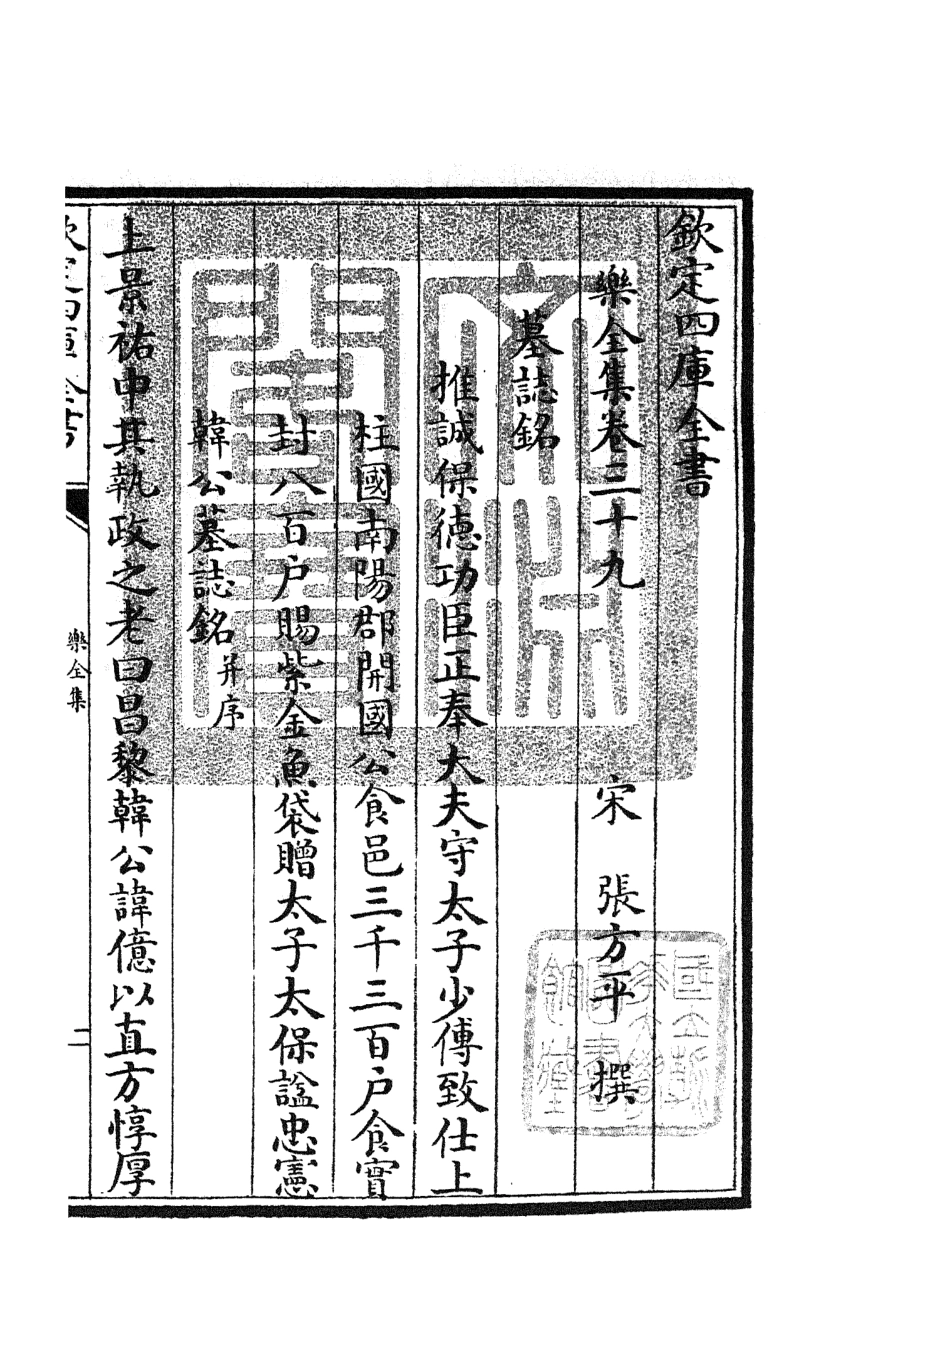 欽定四庫全書
樂全集卷三十九
宋 張方平 撰
墓誌銘
推誠保德功臣正奉大夫守太子少傅致仕上
柱國南陽郡開國公食邑三千三百户食實
封八百户賜紫金魚袋贈太子太保諡忠憲
韓公墓誌銘并序
上景祐中其執政之老曰昌黎韓公諱億以直方惇厚
欽定四庫全書
樂全集
二